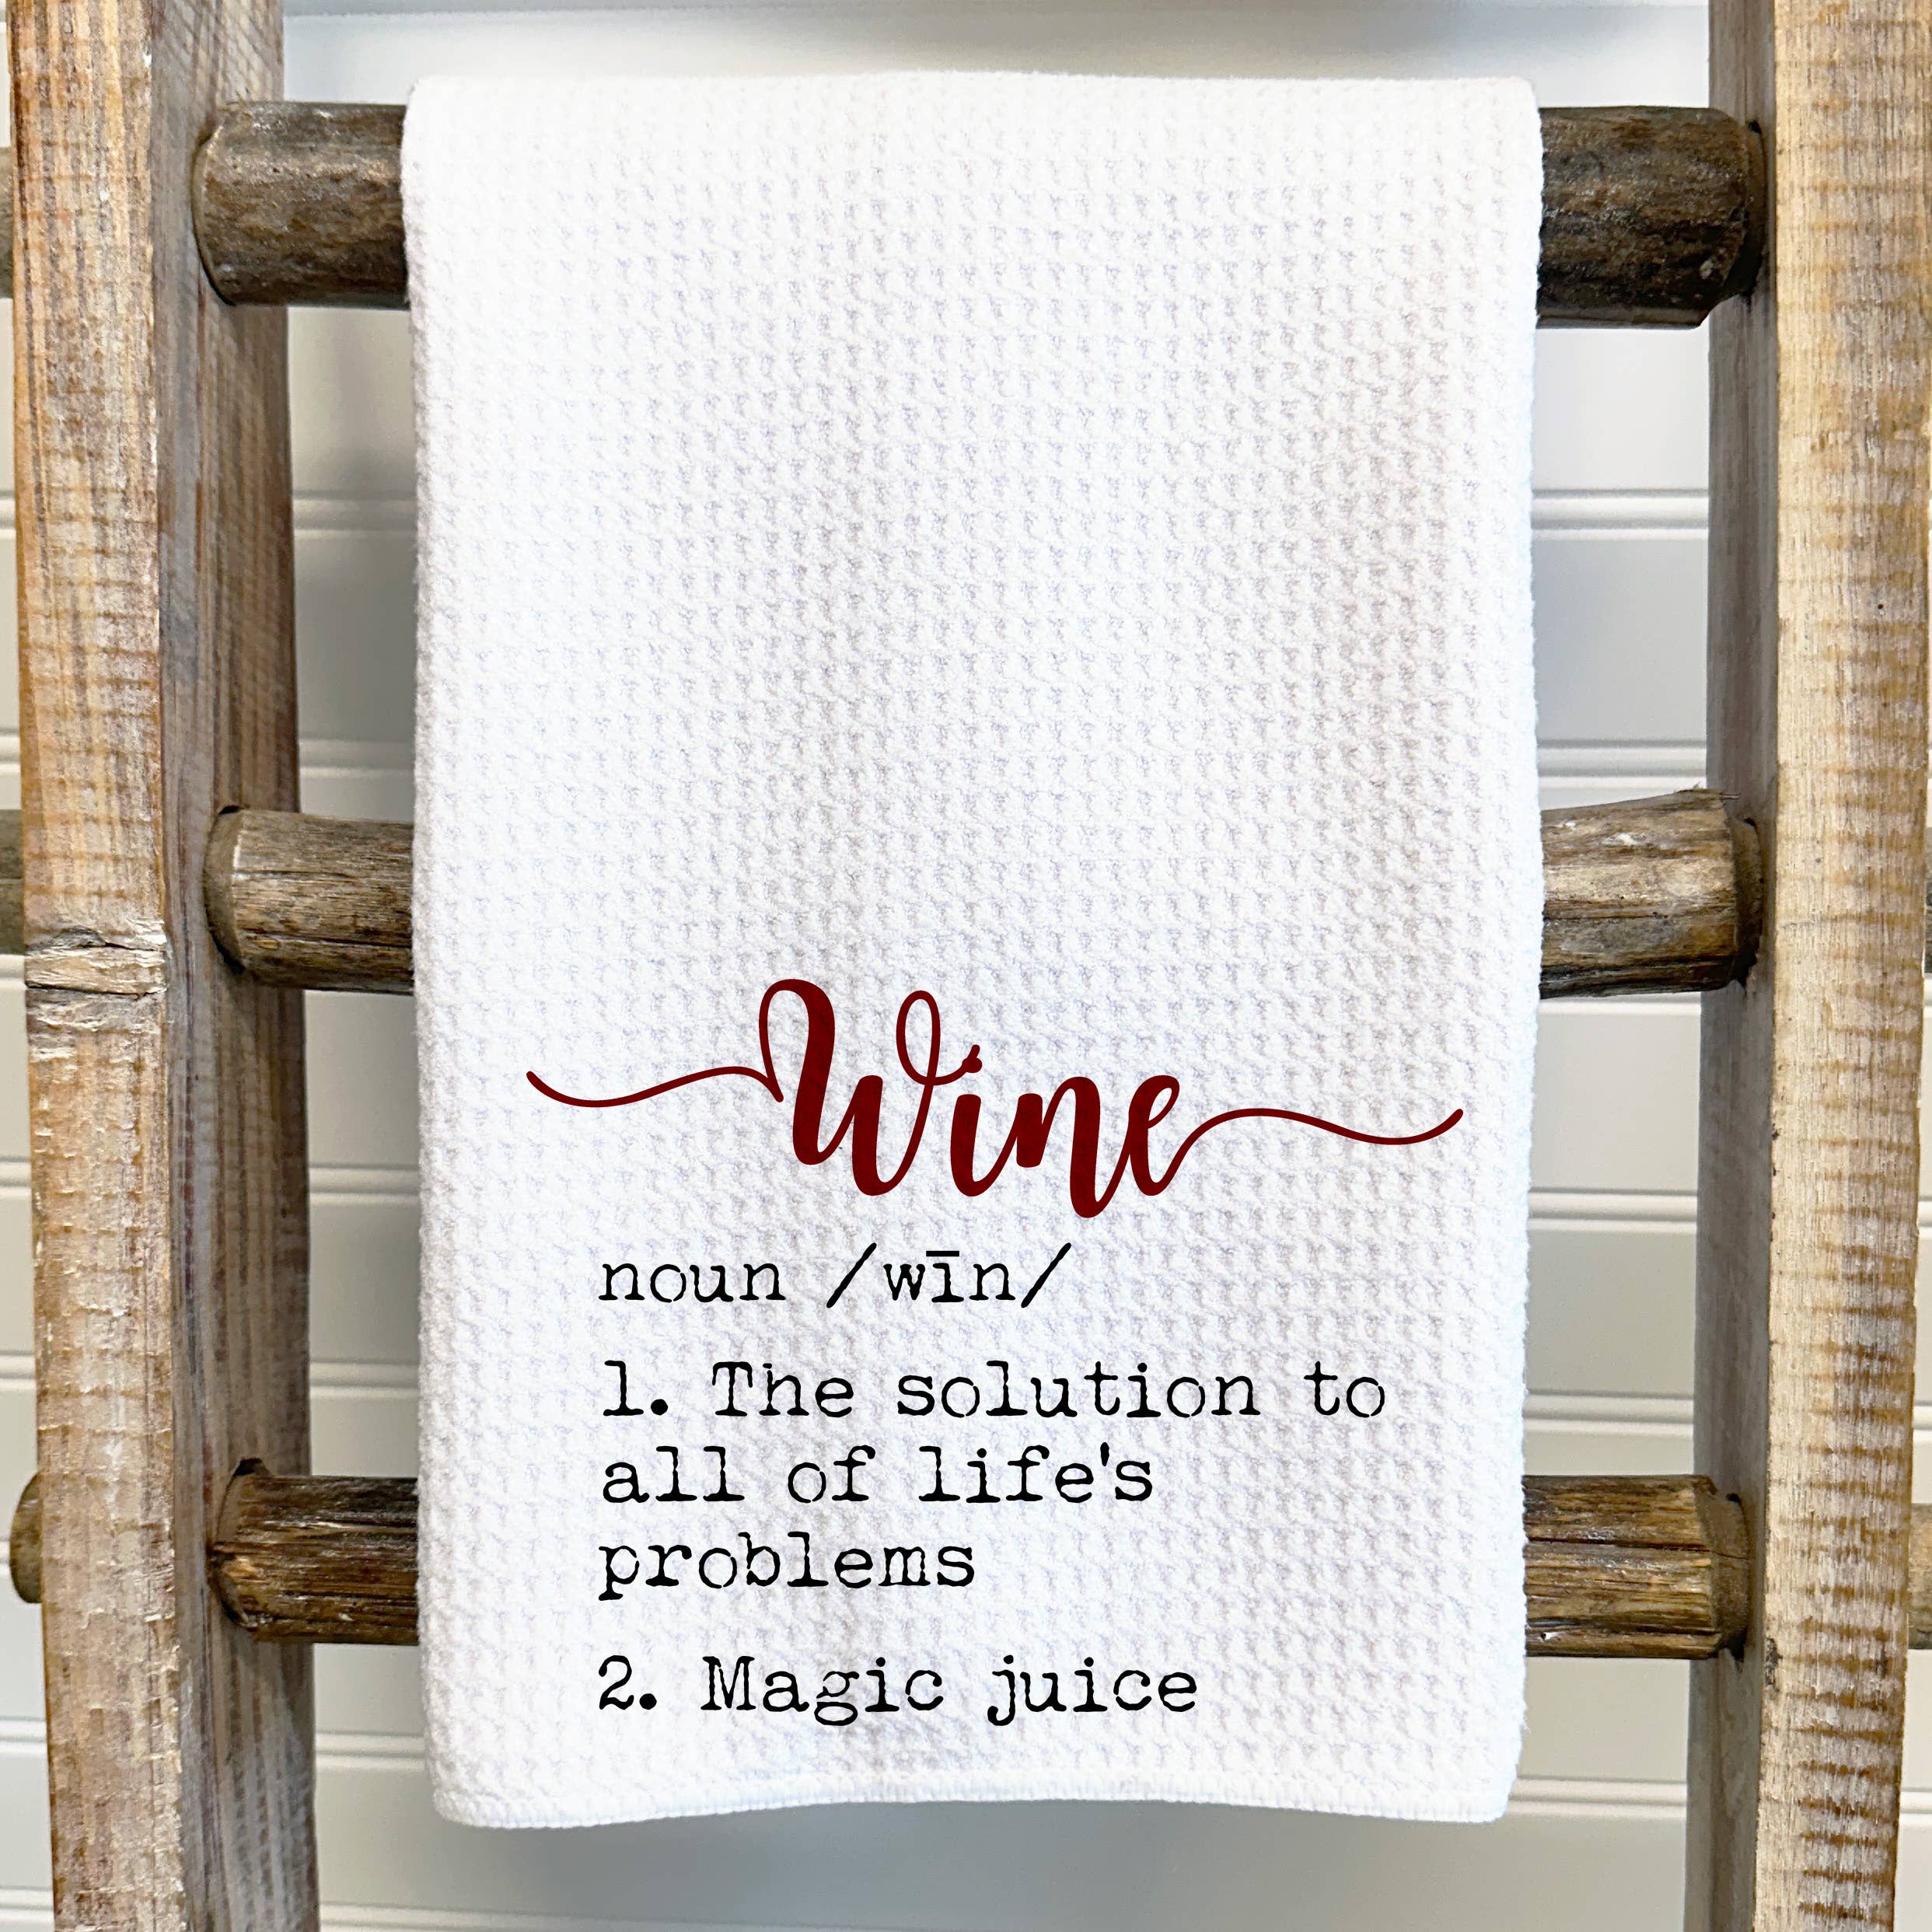 Wine
noun /wīn/
1. The solution to
all of life's
problems
2. Magic juice